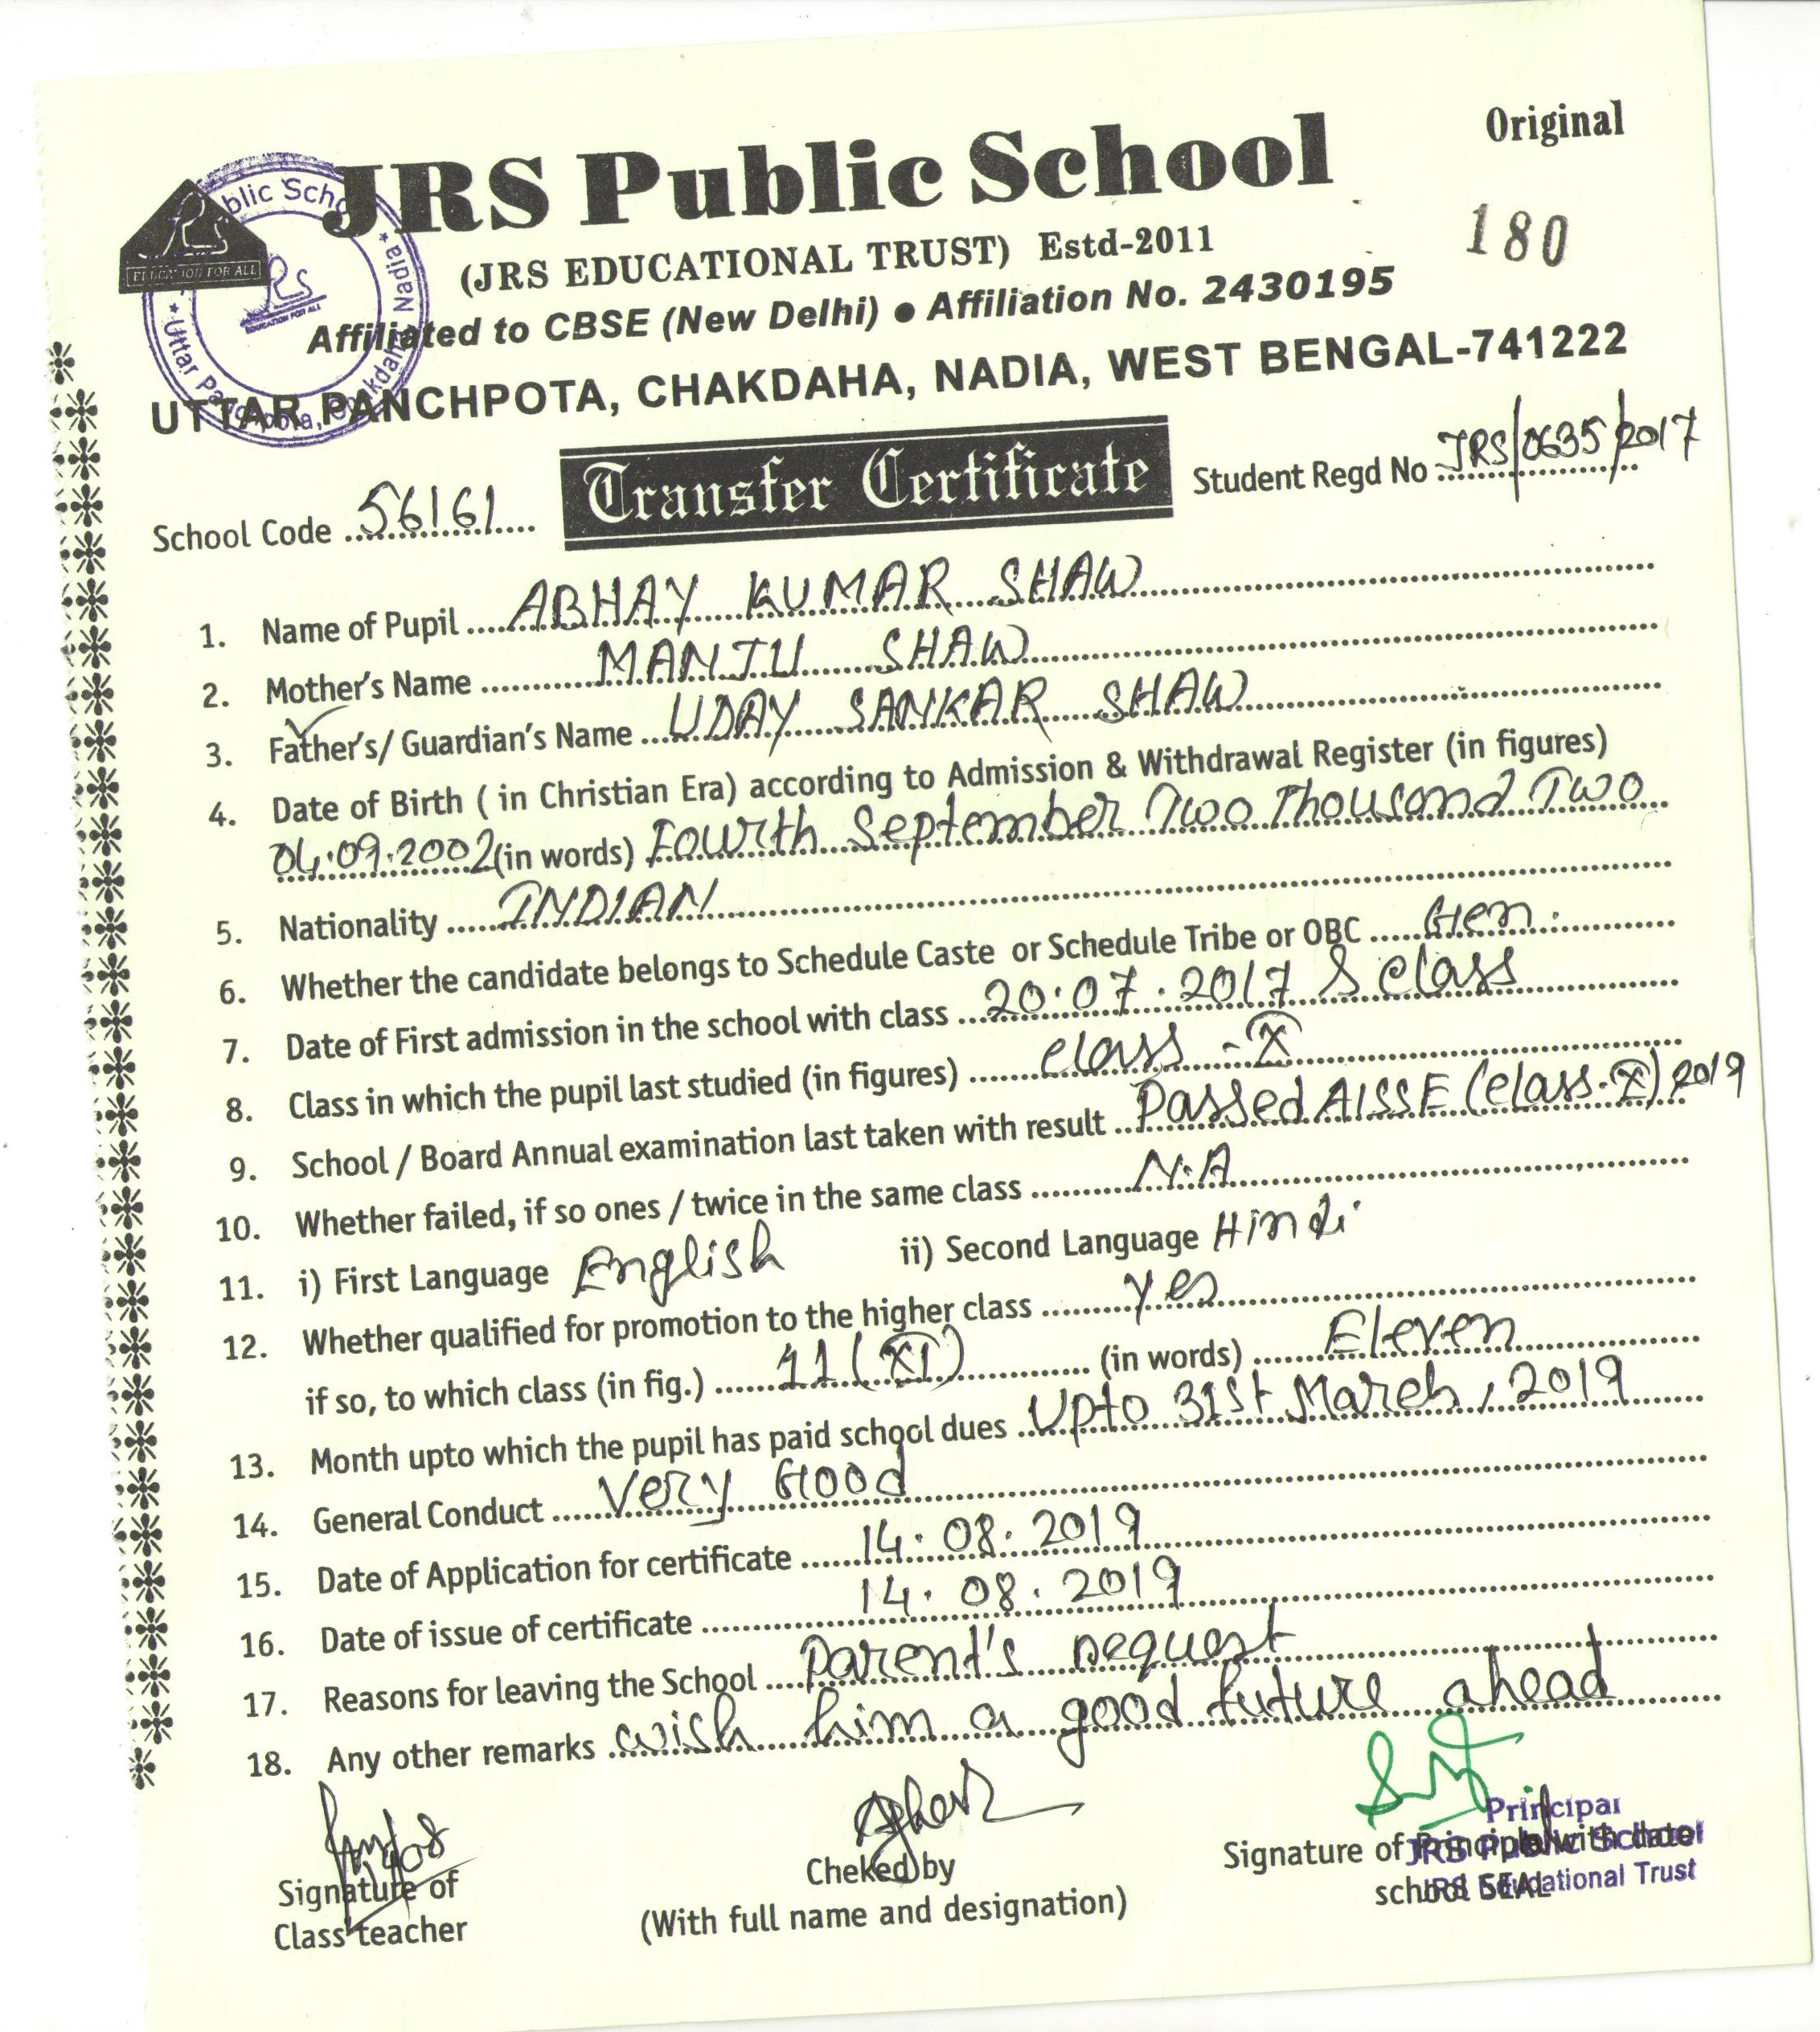 Original
JRS Public School
180
(JRS EDUCATIONAL TRUST) Estd-2011
EDUCATION FOR ALL
Affiliated to CBSE (New Delhi) ● Affiliation No. 2430195
UTTAR PANCHPOTA, CHAKDAHA, NADIA, WEST BENGAL-741222
School Code 56161 Transfer Certificate Student Regd No JRS/0635/2017
1. Name of Pupil ABHAY KUMAR SHAW
2. Mother's Name MANJU SHAW
3. Father's/ Guardian's Name UDAY SANKAR SHAW
4. Date of Birth ( in Christian Era) according to Admission & Withdrawal Register (in figures)
04.09.2002 (in words) Fourth September Two Thousand Two
5. Nationality INDIAN
6. Whether the candidate belongs to Schedule Caste or Schedule Tribe or OBC Gen.
7. Date of First admission in the school with class 20.07.2017 & class
8. Class in which the pupil last studied (in figures) class - X
9. School / Board Annual examination last taken with result Passed AISSE (class-X) 2019
10. Whether failed, if so ones / twice in the same class N.A
11. i) First Language English ii) Second Language Hindi
12. Whether qualified for promotion to the higher class yes
if so, to which class (in fig.) 11 (XI) (in words) Eleven
13. Month upto which the pupil has paid school dues Upto 31st March, 2019
14. General Conduct Very Good
15. Date of Application for certificate 14.08.2019
16. Date of issue of certificate 14.08.2019
17. Reasons for leaving the School parent's request
18. Any other remarks wish him a good future ahead
Principal
JRS Public School
JRS Educational Trust
Signature of
Class teacher
Cheked by
(With full name and designation)
Signature of Principal with date
school SEAL